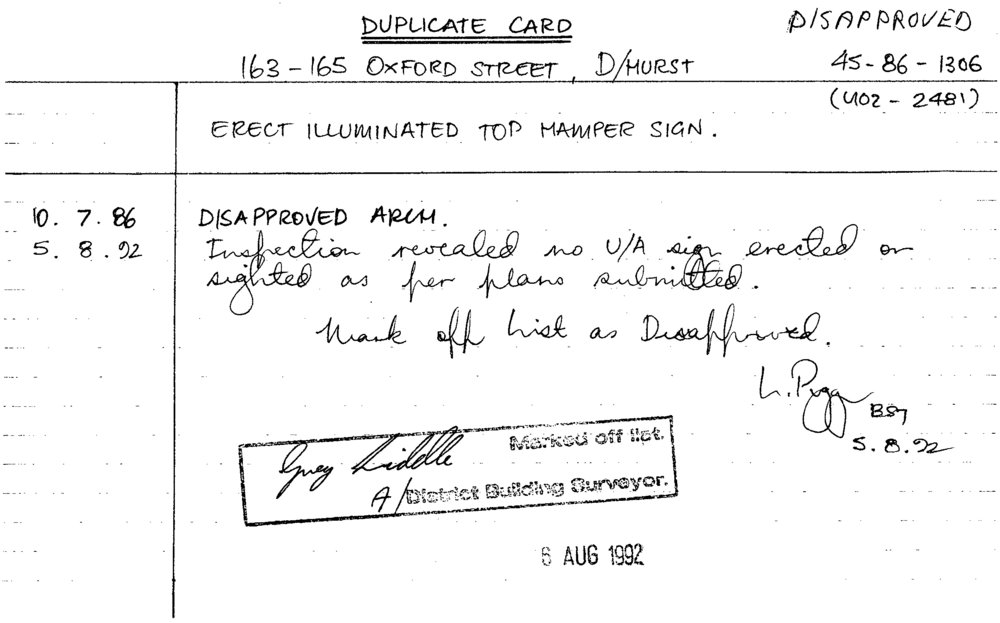 DUPLICATE CARD
DISAPPROVED
163-165 OXFORD STREET, D/HURST
45-86-1306
(U02-2481)
ERECT ILLUMINATED TOP HAMPER SIGN.
10.7.86 DISAPPROVED ARCH.
5.8.92 Inspection revealed no U/A sign erected or
sighted as per plans submitted.
Mark off List as Disapproved.
L.
5.8.92
Marked off list.
Greg Liddle
A/District Building Surveyor.
6 AUG 1992